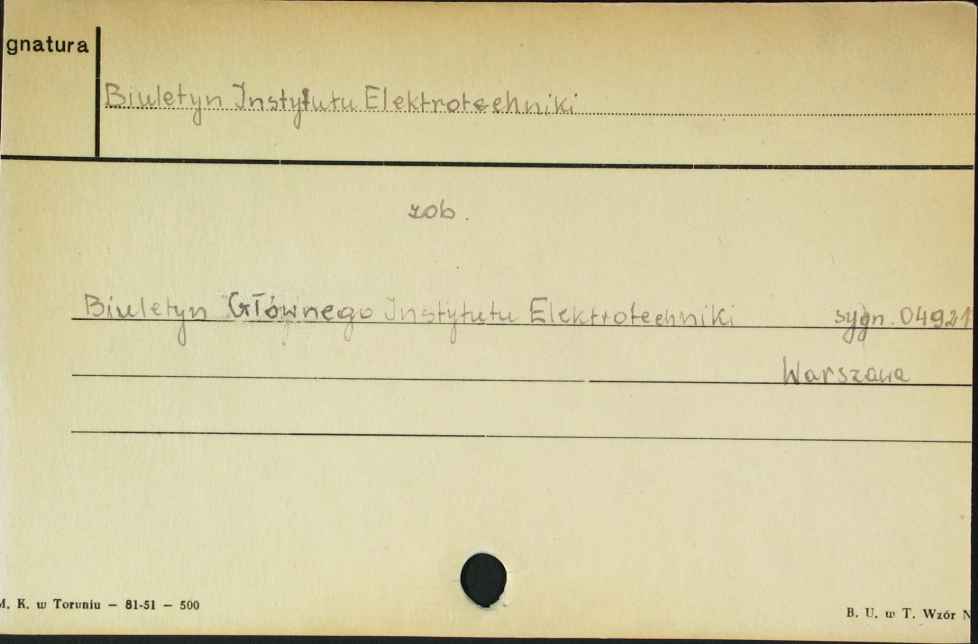 gnatura
Biuletyn Instytutu Elektrotechniki
zob.
Biuletyn Głównego Instytutu Elektrotechniki sygn. 04921
Warszawa
M. K. w Toruniu — 81-51 — 500
B. U. w T. Wzór N